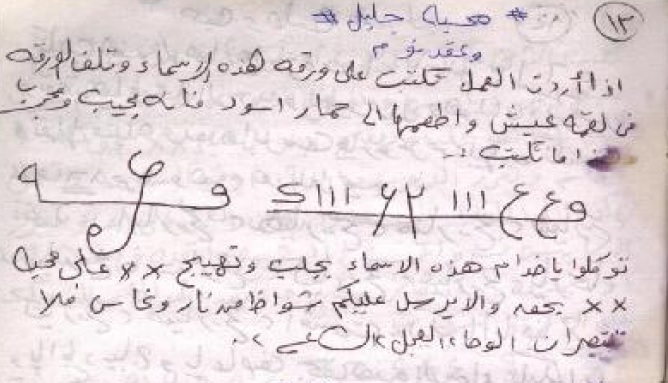 ١٣ # محبة جليل #
وعقد نوم
اذا أردت العمل تكتب على ورقه هذه الاسماء وتلف الورقه
فى لقمة عيش واطعمها الى حمار اسود فانه يجيب ومجرب
هذا ما تكتب :-
توكلوا يا خدام هذه الاسماء بجلب وتهييج ×× على محبة
×× بحق والا يرسل عليكم شواظ من نار ونحاس فلا
تنتصران الوحا٢ العجل٢ الساعة٢